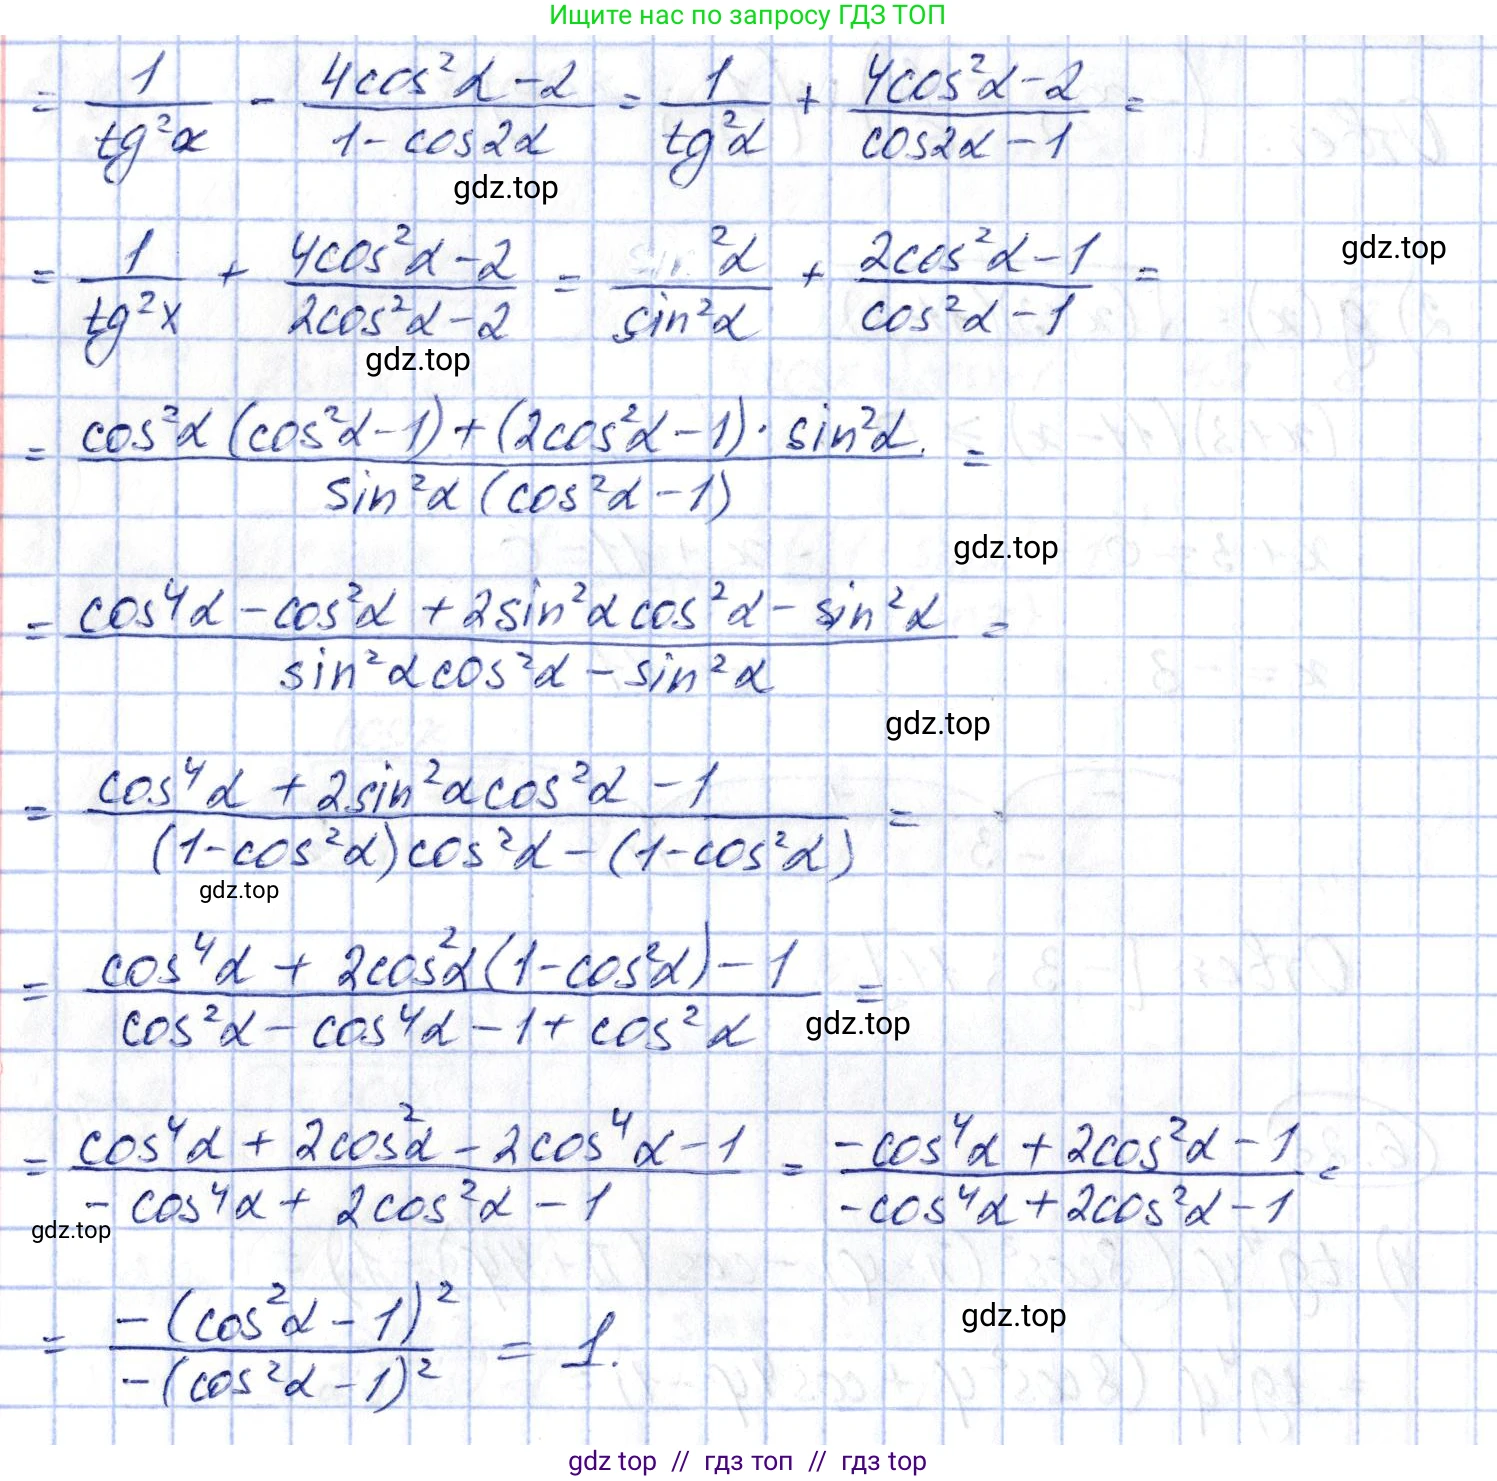 Ищите нас по запросу ГДЗ ТОП
= 1/tg²α - (4cos²α - 2)/(1 - cos2α) = 1/tg²α + (4cos²α - 2)/(cos2α - 1) =
gdz.top
= 1/tg²x + (4cos²α - 2)/(2cos²α - 2) = ²α/sin²α + (2cos²α - 1)/(cos²α - 1) =
gdz.top
gdz.top
= (cos²α (cos²α - 1) + (2cos²α - 1) · sin²α)/(sin²α (cos²α - 1)) =
gdz.top
= (cos⁴α - cos²α + 2sin²α cos²α - sin²α)/(sin²α cos²α - sin²α) =
gdz.top
= (cos⁴α + 2sin²α cos²α - 1)/((1 - cos²α) cos²α - (1 - cos²α)) =
gdz.top
= (cos⁴α + 2cos²α (1 - cos²α) - 1)/(cos²α - cos⁴α - 1 + cos²α) =
gdz.top
= (cos⁴α + 2cos²α - 2cos⁴α - 1)/(- cos⁴α + 2cos²α - 1) = (-cos⁴α + 2cos²α - 1)/(-cos⁴α + 2cos²α - 1) =
gdz.top
= (-(cos²α - 1)²)/(-(cos²α - 1)²) = 1.
gdz.top
gdz top // гдз топ // гдз top